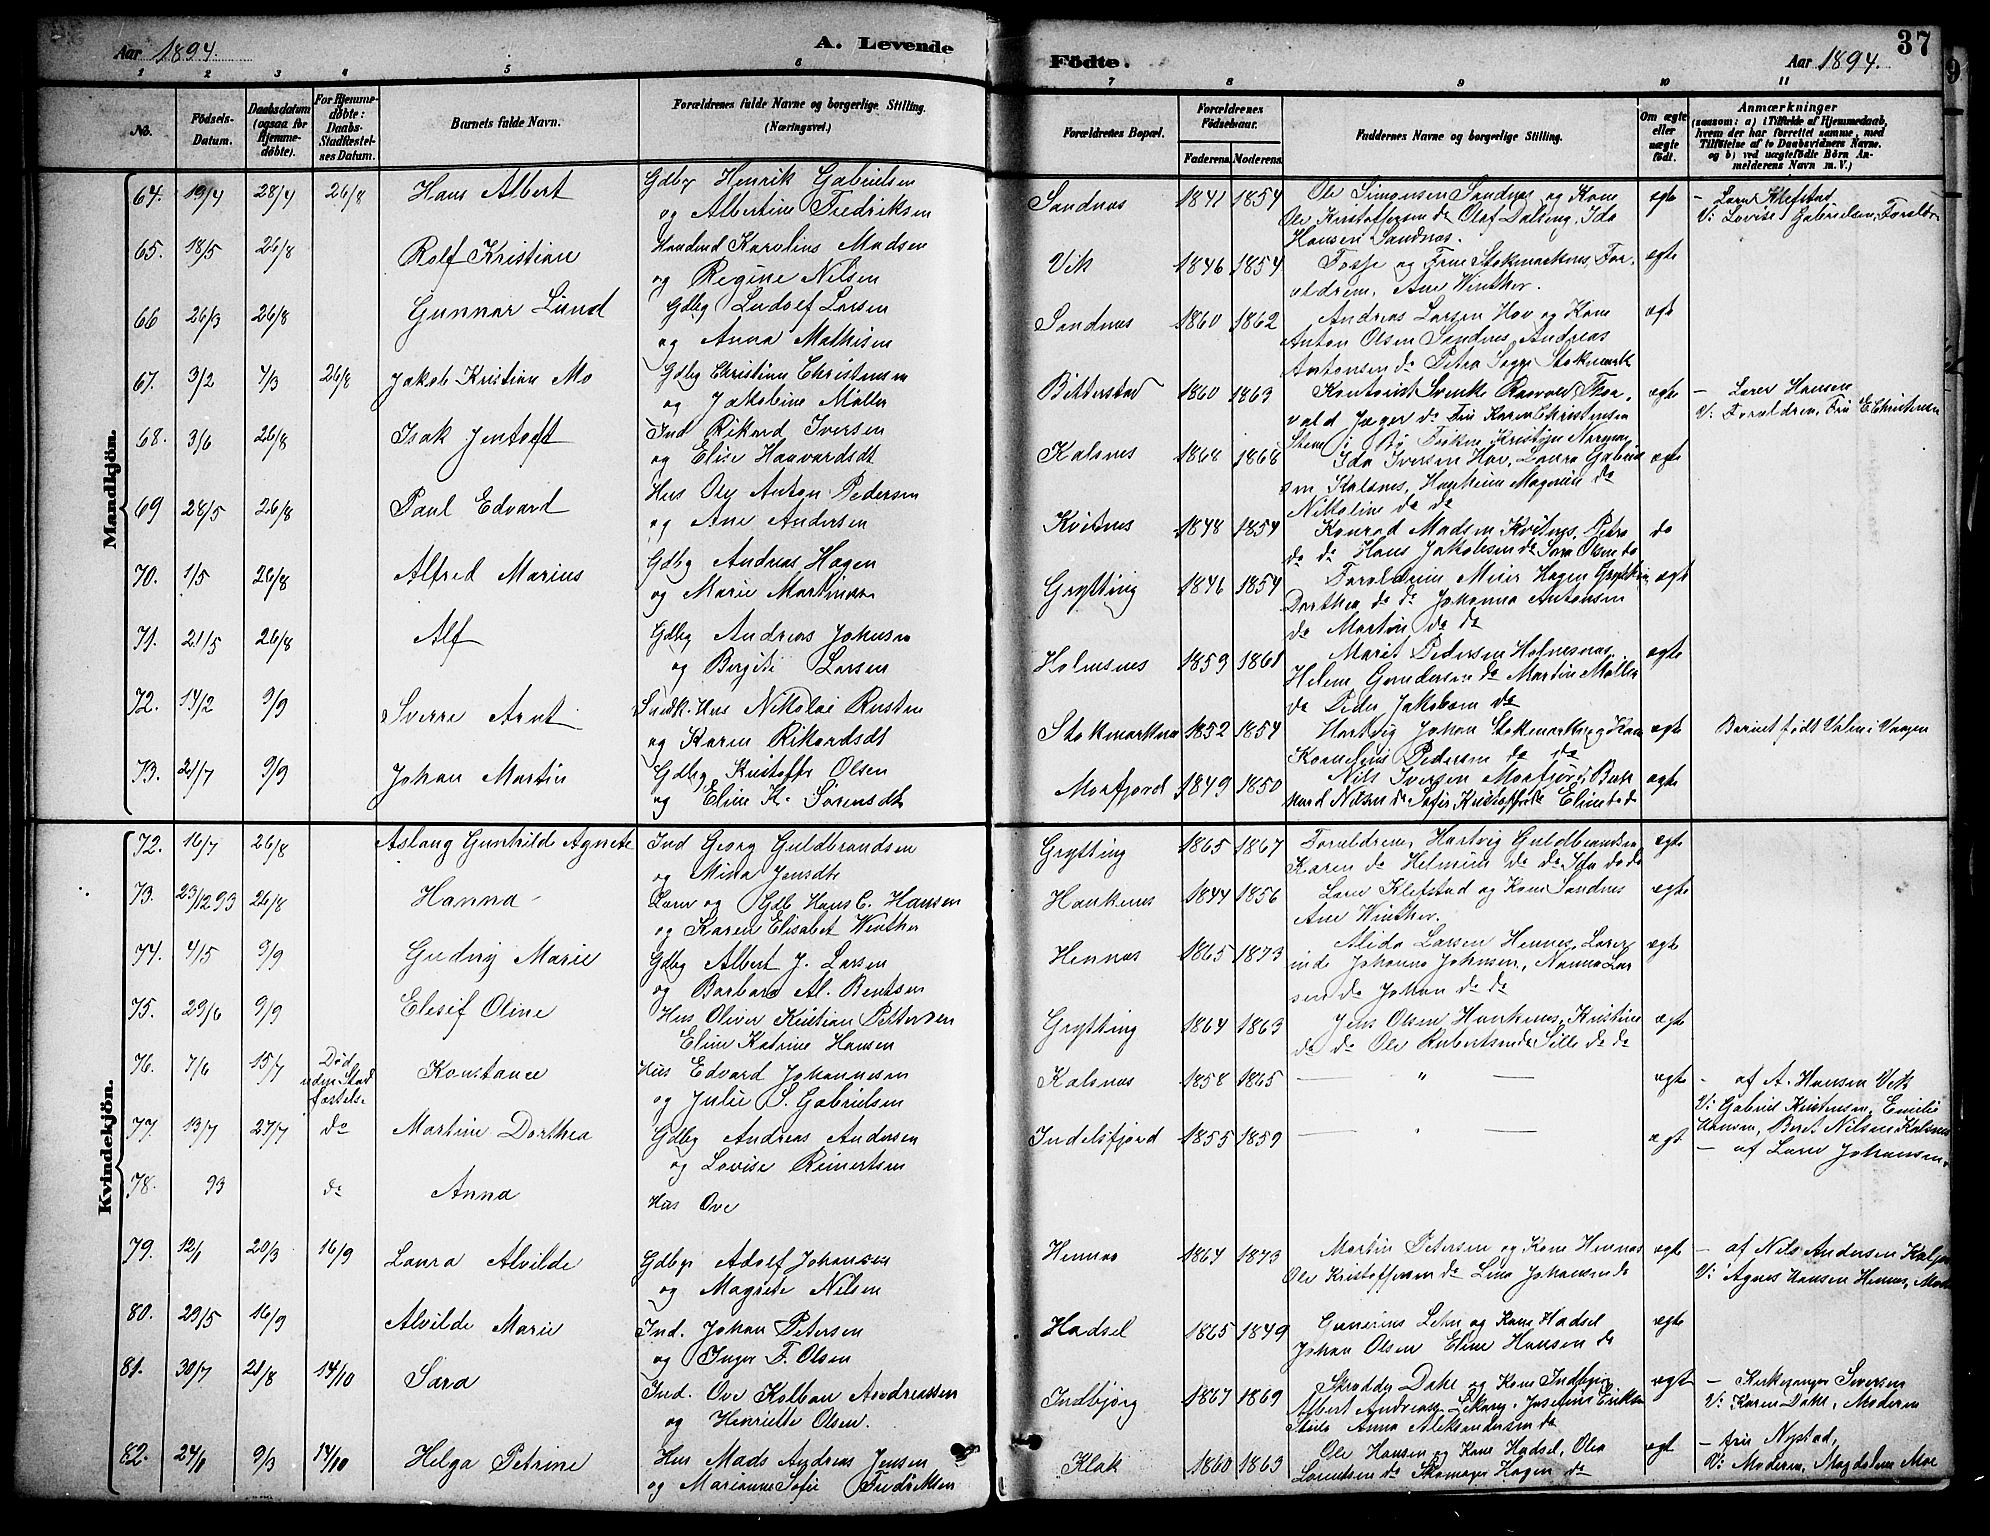 Aar 1894. A. Levende Födte. Aar 1894. 37
1 2 3 4 5 6 7 8 9 10 11
No. Födsels-Datum. Daabsdatum (ogsaa for Hjemmedöbte). For Hjemmedöbte: Daabs-Stadfæstelses Datum. Barnets fulde Navn. Forældrenes fulde Navne og borgerlige Stilling. (Næringsvei.) Forældrenes Bopæl. Forældrenes Födselsaar. Faderens Moderens Faddernes Navne og borgerlige Stilling. Om ægte eller uægte födt. Anmærkninger (saasom: a) i Tilfælde af Hjemmedaab, hvem der har forrettet samme, med Tilföielse af to Daabsvidners Navne, og b) ved uægtefödte Börn Anmelderens Navn m. V.)
Mandkjön.
64. 19/4 28/4 26/8 Hans Albert Gdbg Henrik Gabrielsen
og Albertine Fredriksen Sandnæs 1841 1854 Ole Simonsen Sandnæs og Kone
Ole Kristoffersen do Olaf Dalseng, Ida
Hansen Sandnæs. ægte – Lærer Klefstad
V: Lovise Gabrielsen, Forældr
65. 18/5 26/8 Rolf Kristian Handlend Karolius Madsen
og Regine Nilsen Vik 1846 1854 Fosse og Frue Stokmarknes, For-
ældrene, Ane Winther. ægte
66 26/3 26/8 Gunnar Lund Gdbg Ludolf Larsen
og Anna Mathisen Sandnæs 1860 1862 Andreas Larsen Hov og Kone
Anton Olsen Sandnes Andreas
Antonsen do Petra Stokmark ægt
67. 3/2 4/3 26/8 Jakob Kristian Mo Gdbg Christian Christensen
og Jakobine Møller Bitterstad 1860 1863 Kontorist Svenke Thor-
vald Jæger do Fru Karen Christensen
Stene i Bø ægte – Lærer Hansen
V: Forældrene, Fru E. Christensen
68. 3/6 26/8 Isak Jentoft Ind Rikard Iversen
og Elise Haavardsdt Kalsnes 1868 1868 Ida Iversen Hov, Laura Gabriel
sen Kalsnes, Magnus do
Nikoline do do ægte
69 28/5 26/8 Paul Edvard Hus Ole Anton Pedersen
og Ane Andersen Kvitnes 1848 1854 Konrad Madsen Kvitnes, Petra
do do Hans Jakobsen do Sara Olsen do do
70. 1/5 26/8 Alfred Marius Gdbg Andreas Hagen
og Marie Martinsen Grytting 1846 1854 Forældrene Meier Hagen Grytting
Dorthea do do Johanna Antonsen
do Martin do do ægt
71. 21/5 26/8 Alf Gdbg Andreas Johnsen
og Bergite Larsen Holmsnes 1859 1861 Marit Pedersen Holmesnes
Helene Gundersen do Martin Møller
do Peder Jakobsen do ægte
72. 14/2 9/9 Sverre Arnt Snedk. Hus Nikolai Rusten
og Karen Rikardsdt Stokmarknæs 1852 1854 Hartvig Johan Stokmarknes og Kone
Kornelius Pedersen do do ægte Barnet født Valen i Vaagen
73. 21/7 9/9 Johan Martin Gdbg Kristoffer Olsen
og Eline K. Sørensdt Morfjord 1849 1850 Nils Iversen Morfjord, Bern
hard do Sofie Kristoffersen do Eline do do ægte
Kvindekjön.
72. 16/7 26/8 Aslaug Gunhilde Agnete Ind Georg Guldbrandsen
og Mina Jensdtr Grytting 1865 1867 Forældrene, Hartvig Guldbrandsen
Karen do Helmine do do Ida do do ægte
73. 23/12 93 26/8 Hanna Lærer og Gdb Hans C. Hansen
og Karen Elisabet Winther Haukenes 1844 1856 Lærer Klefstad og Kone Sandnes
Ane Winther. ægte
74. 4/5 9/9 Gudvig Marie Gdbg Albert J. Larsen
og Barbara Al. Bentsen Hennæs 1865 1873 Alida Larsen Hennes, Lærer
inde Johanna Johnsen, Nanna Lar
sen do Johan do do ægte
75. 29/6 9/9 Elesif Oline Hus Oliver Kristian Pettersen
Eline Katrine Hansen Grytting 1864 1863 Jens Olsen Haukenes, Kristine
do do Ole Robertsen do Sille do do ægte
76. 7/6 15/7 Død uden Stadfæstelse Konstance Hus Edvard Johannesen
og Julie S. Gabrielsen Kalsnæs 1858 1865 — " — ægte – af A. Hansen Vik
V: Gabriel Kristensen, Emilie
Hansen, Beret Nilsen Kalsnes
77. 13/7 27/7 do Martine Dorthea Gdbg Andreas Andersen
og Lovise Reinertsen Indelsfjord 1855 1859 — " — ægt – af Lærer Johansen.
78. 93 do Anna Hus Ove
79. 12/1 20/3 16/9 Laura Alvilde Gdbg Adolf Johansen
og Magrete Nilsen Hennæs 1864 1873 Martin Petersen og Kone Hennæs
Ole Kristoffersen do Lina Johansen do ægte – af Nils Andersen
V: Agnes Hansen Hennes,
80. 29/5 16/9 Alvilde Marie Ind. Johan Petersen
og Inger F. Olsen Hadsel 1865 1849 Gunerius Lehn og Kone Hadsel
Johan Olsen Eline Hansen do ægte
81. 30/7 21/8 14/10 Sara Ind. Ove Kolban Andreassen
og Henriette Olsen. Indbjørg 1867 1869 Skrædder Dahl og Kone Indbjørg
Albert Andreass Josefine Eriksen
Anna Aleksandersen do ægt – Kirkesanger Iversen
V: Karen Dahl, Moderen
82. 24/1 9/3 14/10 Helga Petrine Hus Mads Andreas Jensen
og Marianne Sofie Fredriksen Klak 1860 1863 Ole Hansen og Kone Hadsel, Olea
Larentsen do Skomager Hagen do ægt – Nystad,
V: Moderen, Magdalena Moe